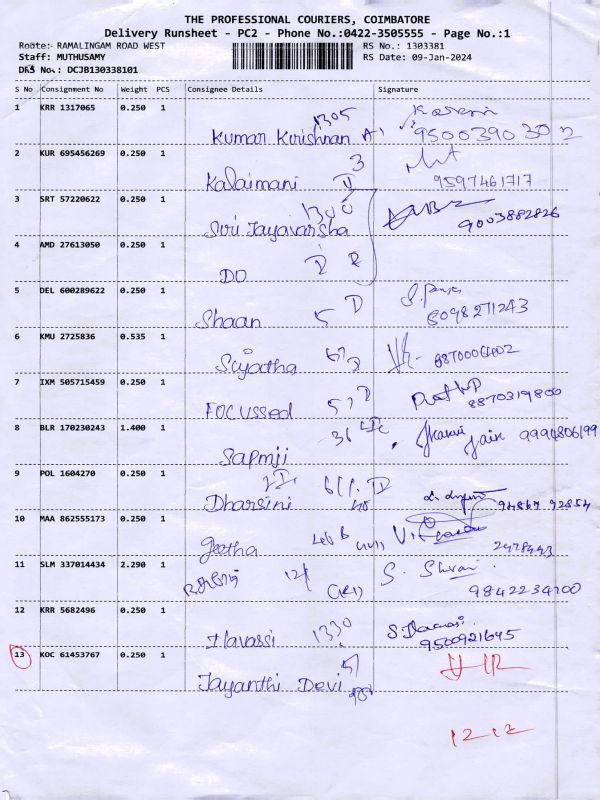 THE PROFESSIONAL COURIERS, COIMBATORE
Delivery Runsheet - PC2 - Phone No.:0422-3505555 - Page No.:1
Route:- RAMALINGAM ROAD WEST RS No.: 1303381
Staff: MUTHUSAMY RS Date: 09-Jan-2024
DRS No.: DCJB130338101
S No Consignment No Weight PCS Consignee Details Signature
1 KRR 1317065 0.250 1 1305
Kumar Kirishnan A1 9500390302
2 KUR 695456269 0.250 1 3
Kalaimani 9597461717
3 SRT 57220622 0.250 1 1300
Siri Jayavarsha 9003882826
4 AMD 27613050 0.250 1
DO
5 DEL 600289622 0.250 1 D
Shaan 5 8098271243
6 KMU 2725836 0.535 1
Sujatha 67 8870006402
7 IXM 505715459 0.250 1
FOCUSSED 57 D 8870319800
8 BLR 170230243 1.400 1 36
Sapmji Jain 9994806199
9 POL 1604270 0.250 1
Dharsini 94867 92854
10 MAA 862555173 0.250 1
Geetha 2478443
11 SLM 337014434 2.290 1 12/
S. 9842234700
12 KRR 5682496 0.250 1 1330
Ilavassi 9500921645
13 KOC 61453767 0.250 1 51
Jayanthi Devi
12-12